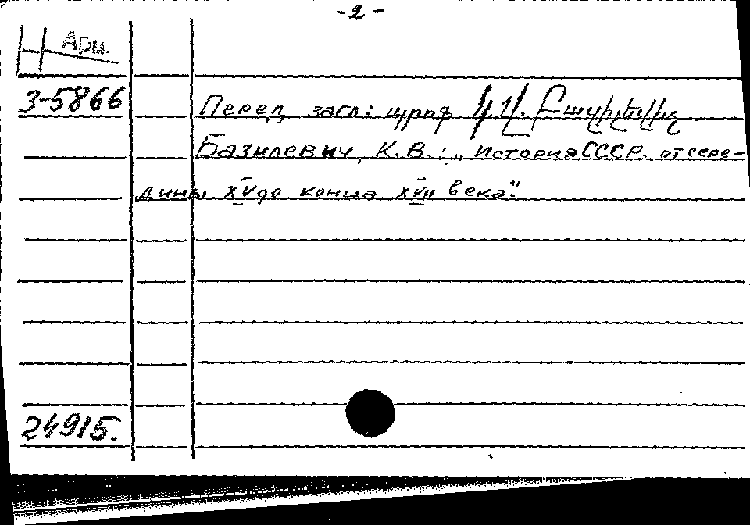 -2-
Арм.
3-5866
Перед загл: պրոֆ Կ. Վ. Բազիլևիչ
Базилевич, К. В.: „История СССР. от сере-
дины XV до конца XVII века“.
24915.